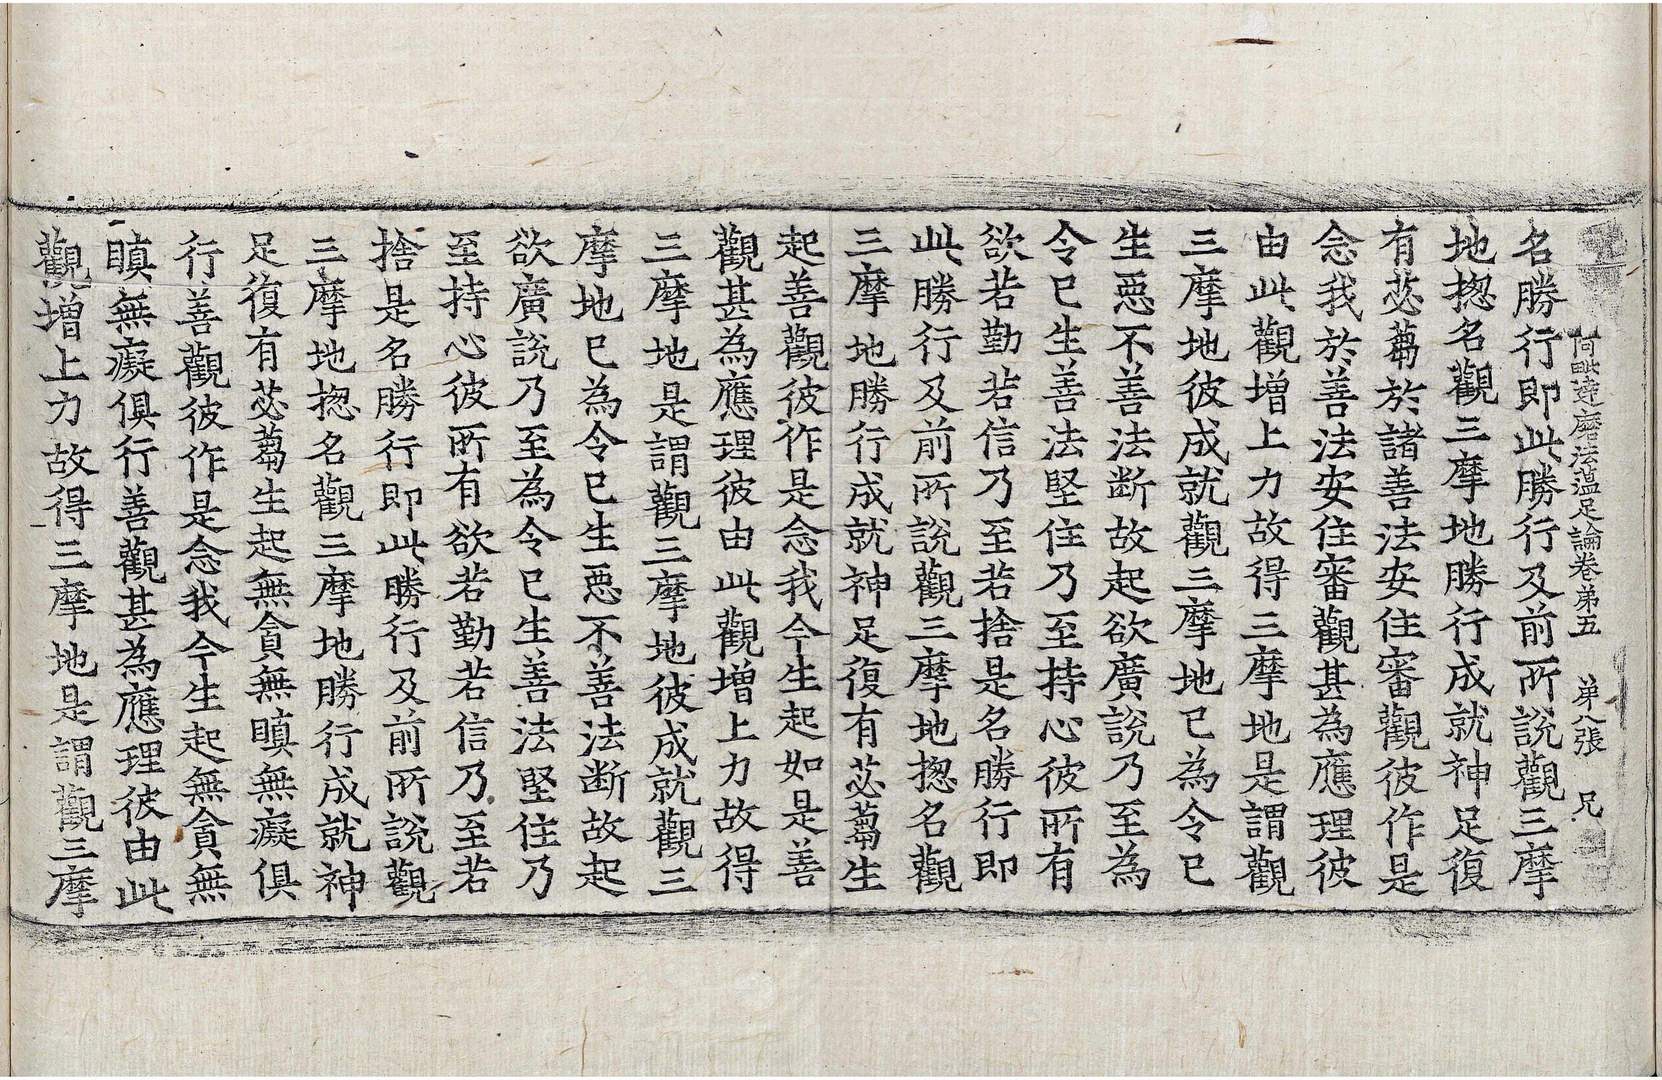 阿毗達磨法蘊足論卷苐五 苐八張 兄
名勝行即此勝行及前所說觀三摩
地揔名觀三摩地勝行成就神足復
有苾蒭於諸善法安住審觀彼作是
念我於善法安住審觀甚為應理彼
由此觀增上力故得三摩地是謂觀
三摩地彼成就觀三摩地已為令已
生惡不善法断故起欲廣說乃至為
令已生善法堅住乃至持心彼所有
欲若勤若信乃至若捨是名勝行即
此勝行及前所說觀三摩地揔名觀
三摩地勝行成就神足復有苾蒭生
起善觀彼作是念我今生起如是善
觀甚為應理彼由此觀增上力故得
三摩地是謂觀三摩地彼成就觀三
摩地已為令已生惡不善法断故起
欲廣說乃至為令已生善法堅住乃
至持心彼所有欲若勤若信乃至若
捨是名勝行即此勝行及前所說觀
三摩地揔名觀三摩地勝行成就神
足復有苾蒭生起無貪無瞋無癡俱
行善觀彼作是念我今生起無貪無
瞋無癡俱行善觀甚為應理彼由此
觀增上力故得三摩地是謂觀三摩